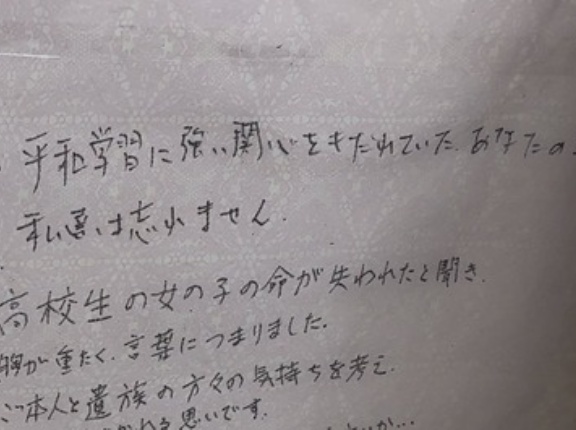 平和学習に強い関心をもたれていた。あなたの
私達は忘れません。
高校生の女の子の命が失われたと聞き、
胸が重たく、言葉につまりました。
ご本人と遺族の方々の気持ちを考え、
思いです。